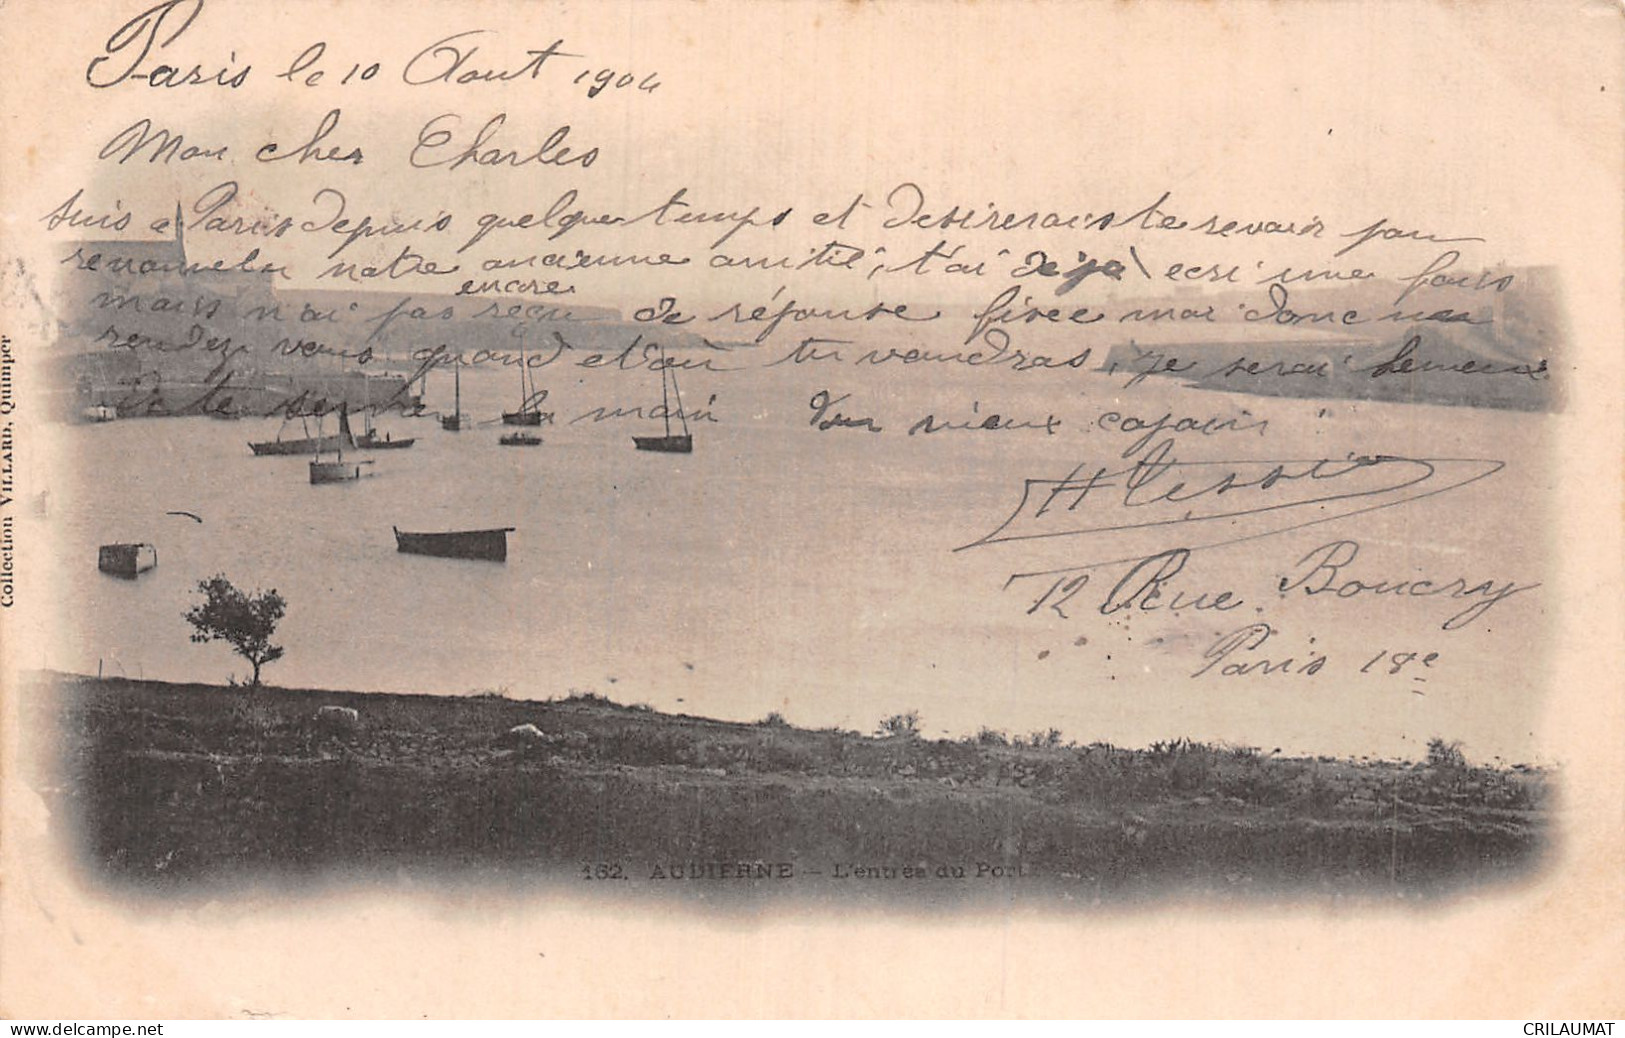 Paris le 10 Aout 1904
Mon cher Charles
suis a Paris depuis quelque temps et desirerais te revoir pour
renouveler notre ancienne amitié, t'ai déjà ecri une fois
encore
mais n'ai pas reçu de réponse fixee moi donc un
rendez vous quand et où tu voudras, je serai heureux
de te serrer la main Ton vieux copain
H Tessier
12 Rue Boucry
Paris 18e
Collection VILLARD, Quimper
162. AUDIERNE – L'entrée du Port
delcampe.net
CRILAUMAT